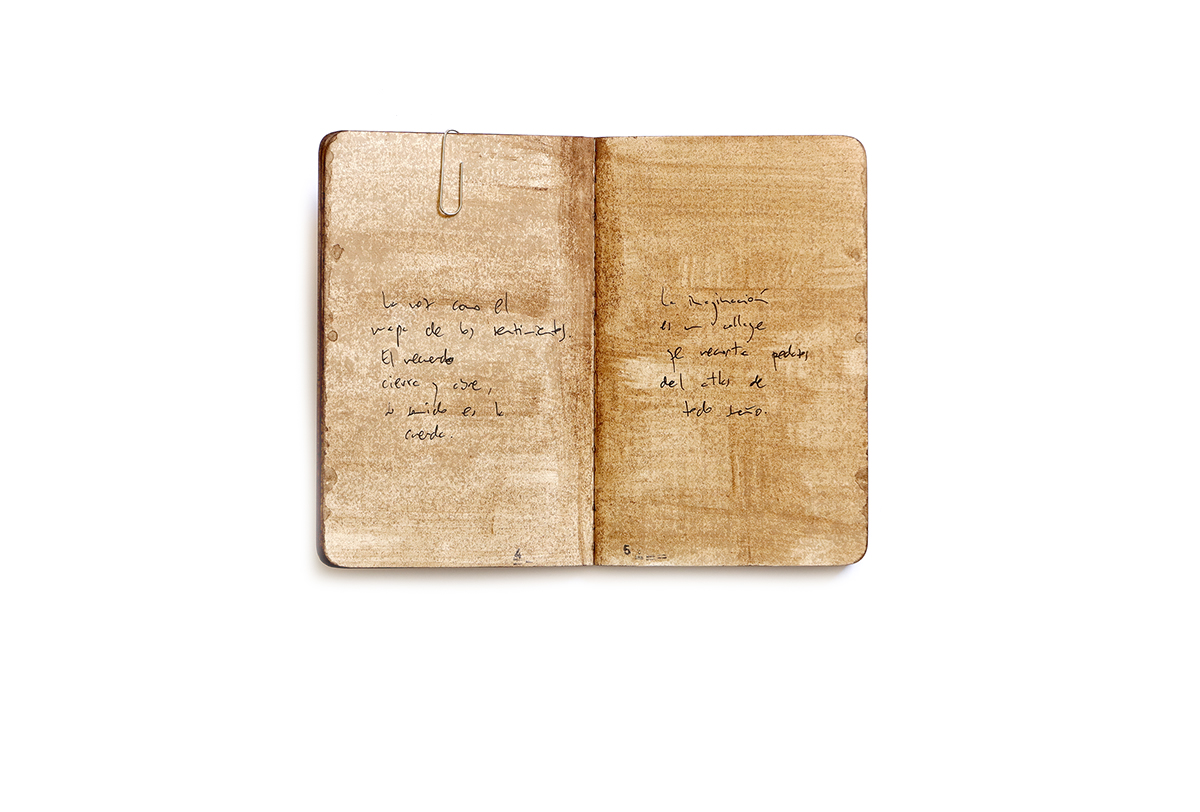 La voz como el
mapa de los sentimientos.
El recuerdo
cierra y abre,
su sonido es la
cuerda.
4
La imaginación
es un collage
que recorta pedazos
del atlas de
todo sueño.
5